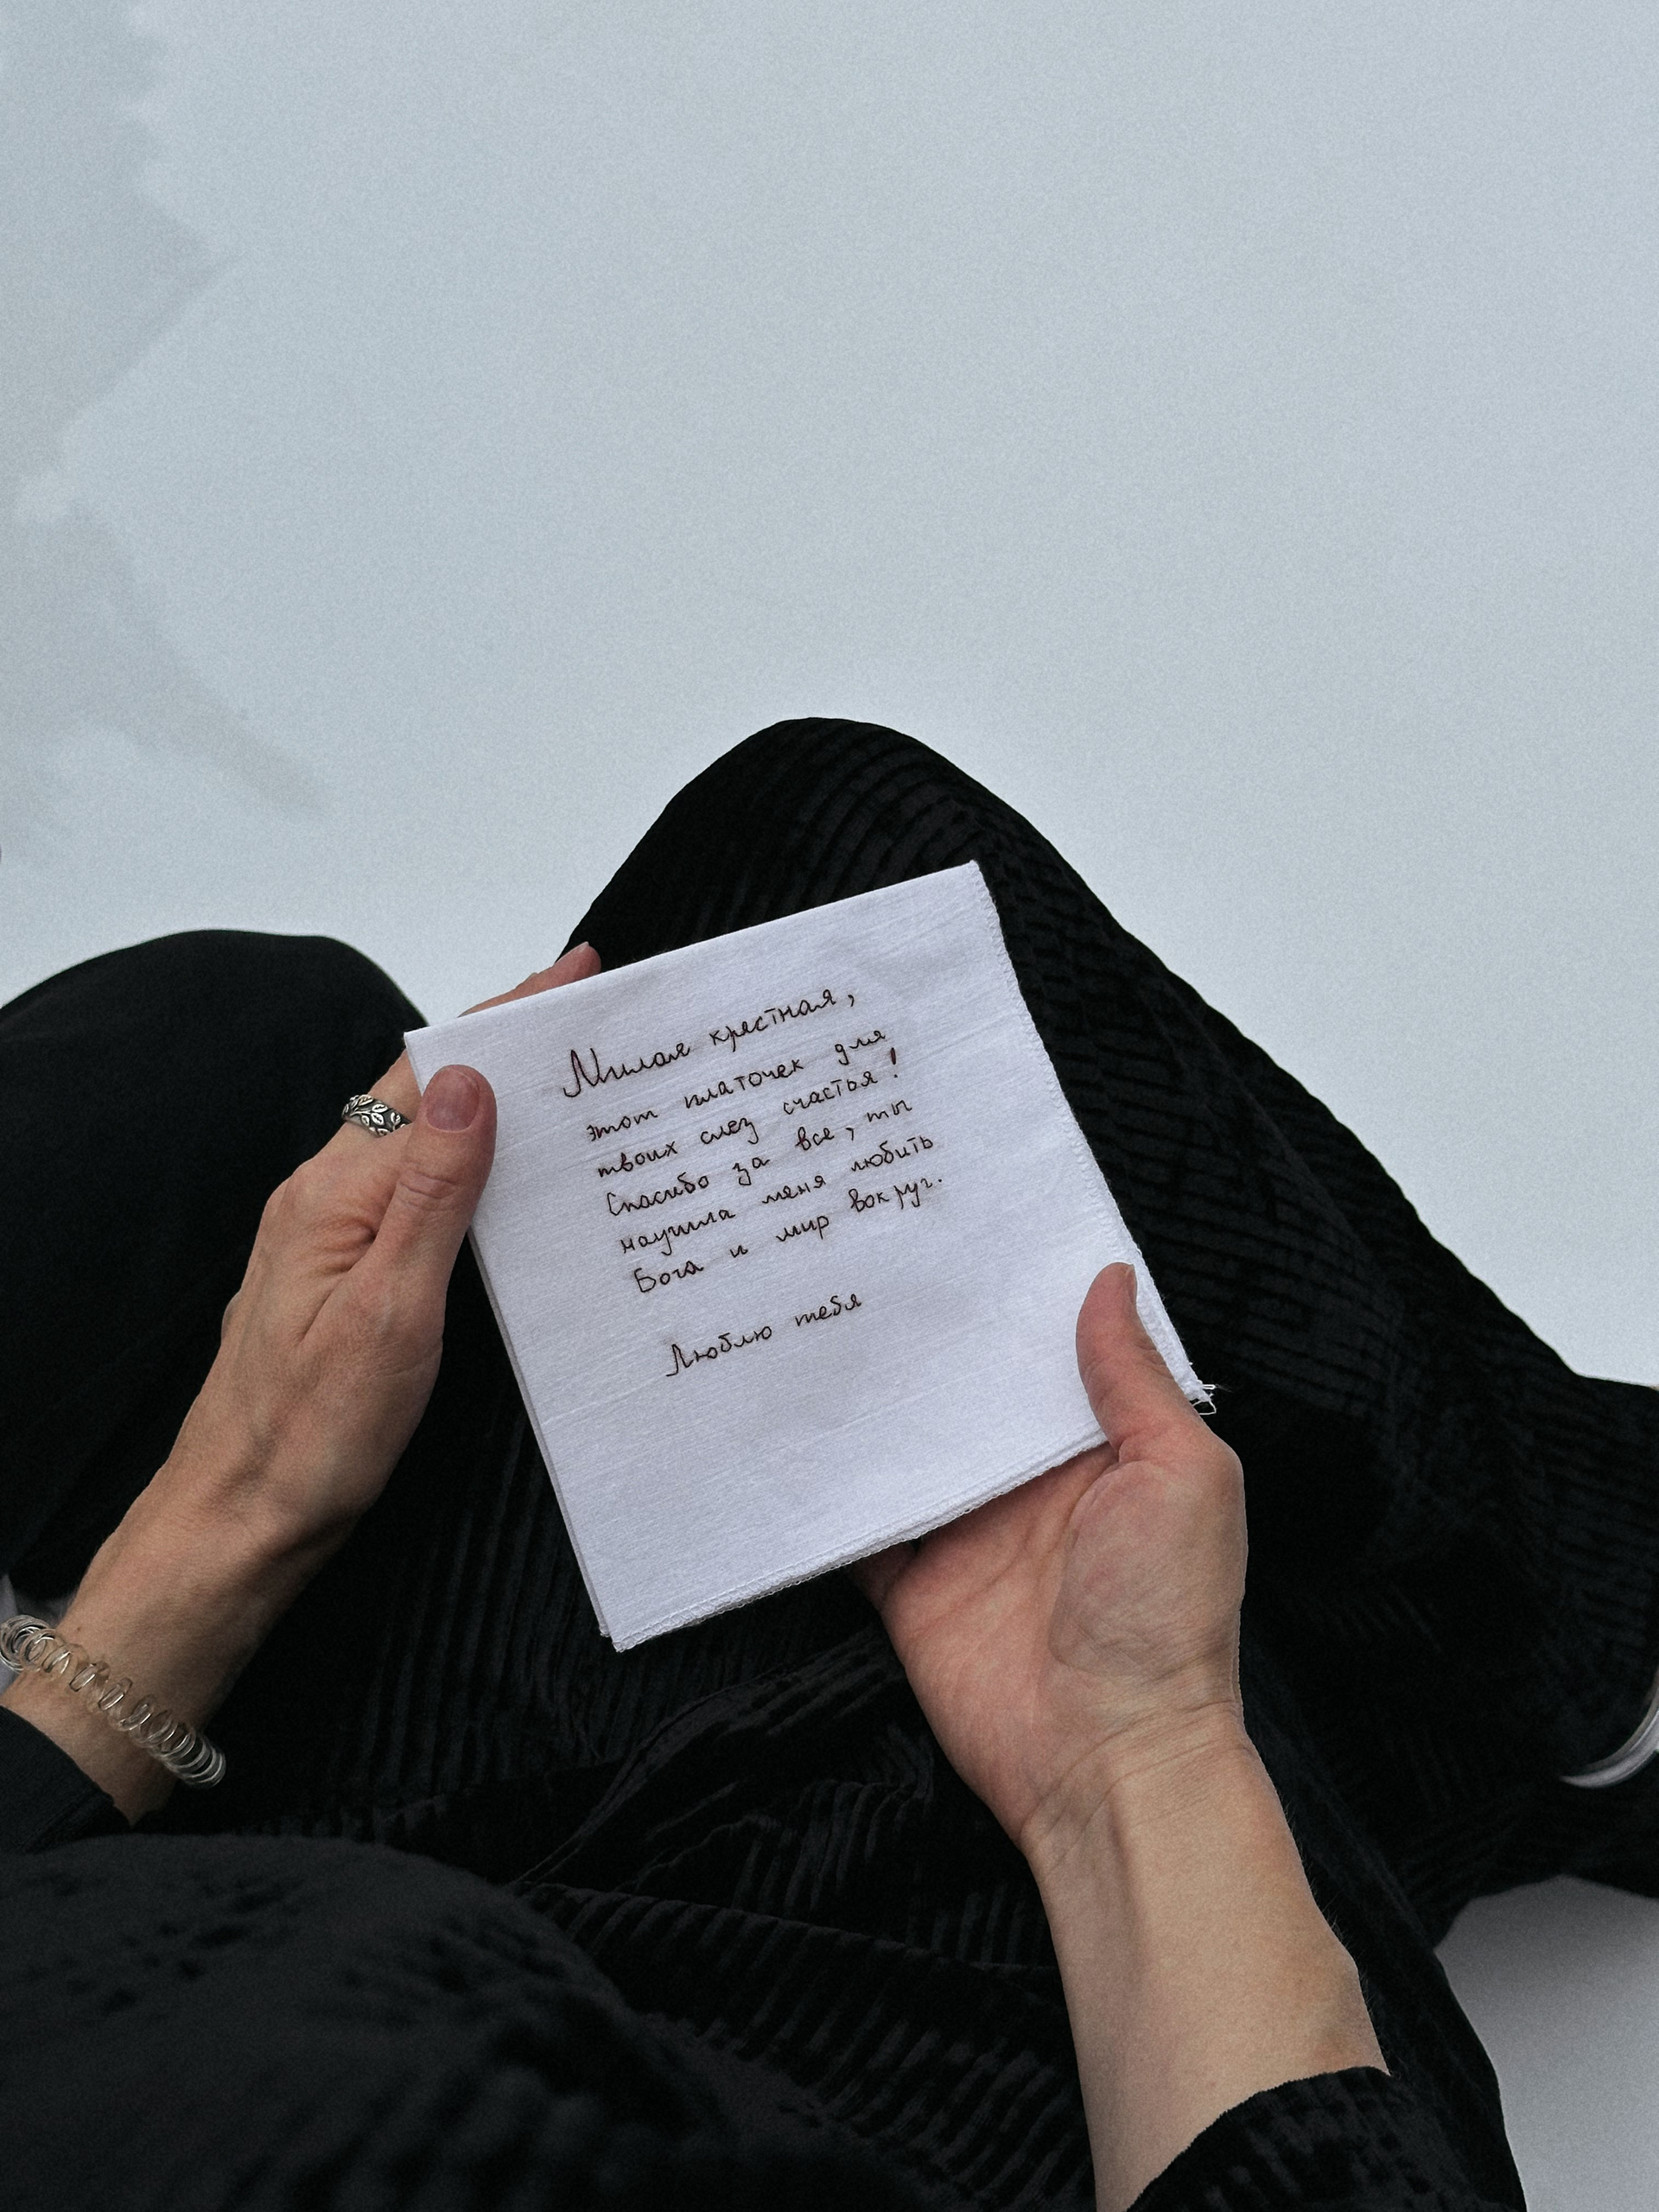 Милая крестная,
этот платочек для
твоих слез счастья!
Спасибо за все, ты
научила меня любить
Бога и мир вокруг.
Люблю тебя